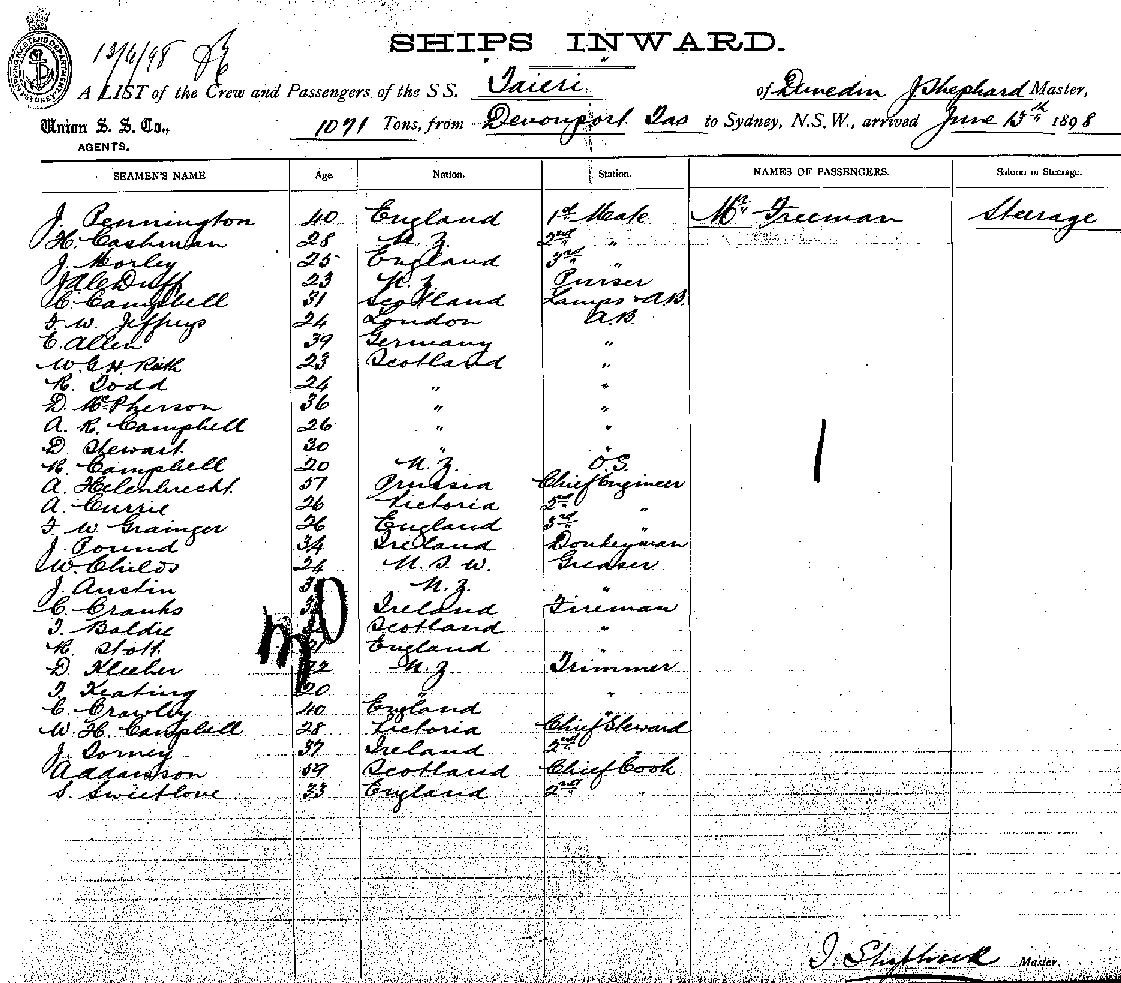 13/6/98
SHIPS INWARD.
A LIST of the Crew and Passengers of the S.S. Taieri of Dunedin J Shephard Master,
Union S. S. Co., 1071 Tons, from Devonport Tas to Sydney, N.S.W., arrived June 13th 1898
AGENTS.
SEAMEN'S NAME Age. Nation. Station. NAMES OF PASSENGERS. Saloon or Steerage.
J. Pennington 40 England 1st Mate Mr Freeman Steerage
H. Cashman 28 N. Z. 2nd "
J Morley 25 England 3rd "
23 N. Z. Purser
C. Campbell 31 Scotland Lamps & A.B.
F. W. Jeffrys 24 London A.B.
E. Allen 39 Germany "
W. G. H. 23 Scotland "
R. Dodd 24 " "
D. McPherson 36 " "
A. R. Campbell 26 " "
D. Stewart 30 " "
R. Campbell 20 N. Z. O.S.
A. Helenbrecht 57 Prussia Chief Engineer
A. Currie 26 Victoria 2nd "
F. W. Grainger 26 England 3rd "
J. Pound 34 Ireland Donkeyman
W. Childs 24 N. S. W. Greaser
J Austin N. Z. "
C. Cranks Ireland Fireman
T. Baldie Scotland "
R. Stott England "
D. Kleeher 22 N. Z. Trimmer
T. Keating 20 " "
C. Crawley 40 England "
W. H. Campbell 28 Victoria Chief Steward
J. Dorney 37 Ireland 2nd "
Adamson 39 Scotland Chief Cook
S. Sweetlove 33 England 2nd "
J. Shephard Master.